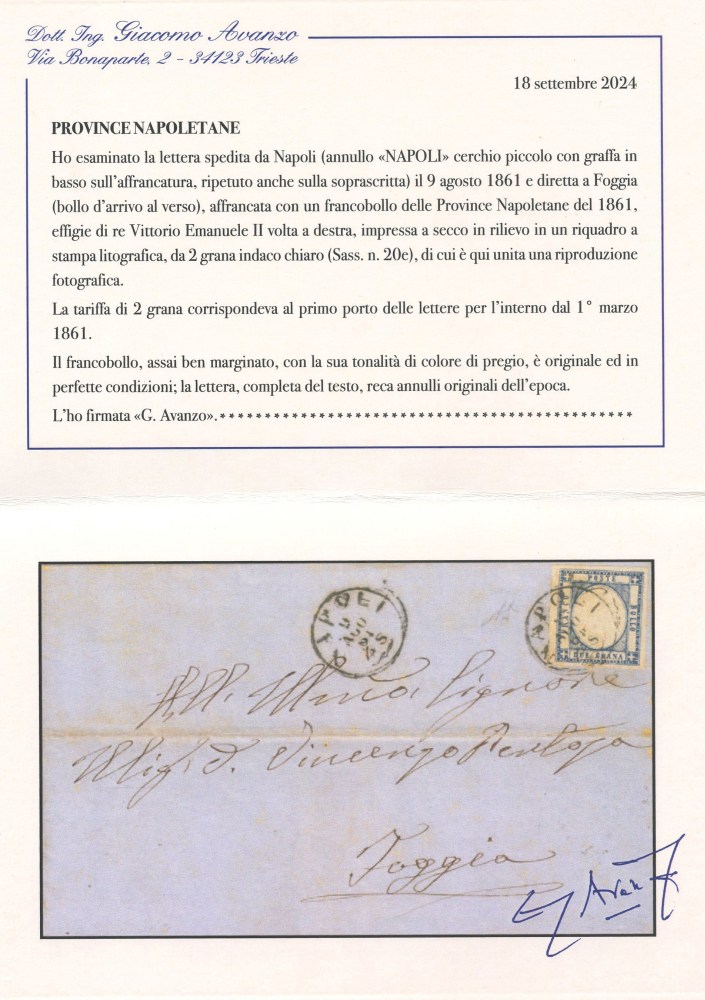 Dott. Ing. Giacomo Avanzo
Via Bonaparte, 2 – 34123 Trieste
18 settembre 2024
PROVINCE NAPOLETANE
Ho esaminato la lettera spedita da Napoli (annullo «NAPOLI» cerchio piccolo con graffa in
basso sull'affrancatura, ripetuto anche sulla soprascritta) il 9 agosto 1861 e diretta a Foggia
(bollo d'arrivo al verso), affrancata con un francobollo delle Province Napoletane del 1861,
effigie di re Vittorio Emanuele II volta a destra, impressa a secco in rilievo in un riquadro a
stampa litografica, da 2 grana indaco chiaro (Sass. n. 20e), di cui è qui unita una riproduzione
fotografica.
La tariffa di 2 grana corrispondeva al primo porto delle lettere per l'interno dal 1° marzo
1861.
Il francobollo, assai ben marginato, con la sua tonalità di colore di pregio, è originale ed in
perfette condizioni; la lettera, completa del testo, reca annulli originali dell'epoca.
L'ho firmata «G. Avanzo».************************************************
NAPOLI
AGO
NAPOLI
POSTE
BOLLO
DUE GRANA
All' Signore
D. Vincenzo
Foggia